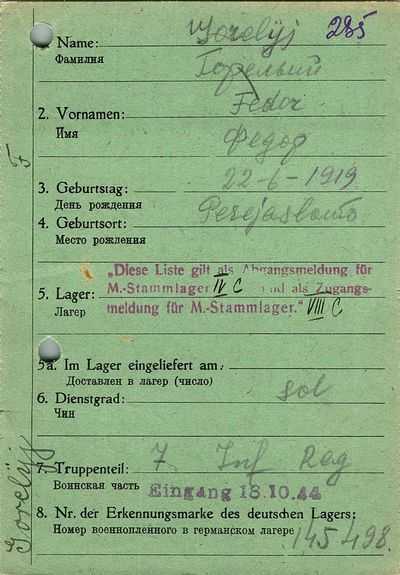 285
1. Name: Gorelyj
Фамилия Горелый
2. Vornamen: Fedor
Имя Федор
3. Geburtstag: 22-6-1919
День рождения
4. Geburtsort:
Место рождения
„Diese Liste gilt als Abgangsmeldung für
M.-Stammlager IV C und als Zugangs-
5. Lager: meldung für M.-Stammlager." VIII C
Лагер
5a. Im Lager eingeliefert am:
Доставлен в лагер (число)
6. Dienstgrad: sol
Чин
7. Truppenteil: 7 Inf Reg
Воинская часть Eingang 13.10.44
8. Nr. der Erkennungsmarke des deutschen Lagers:
Номер военнопленного в германском лагере 145498
Gorelyj F